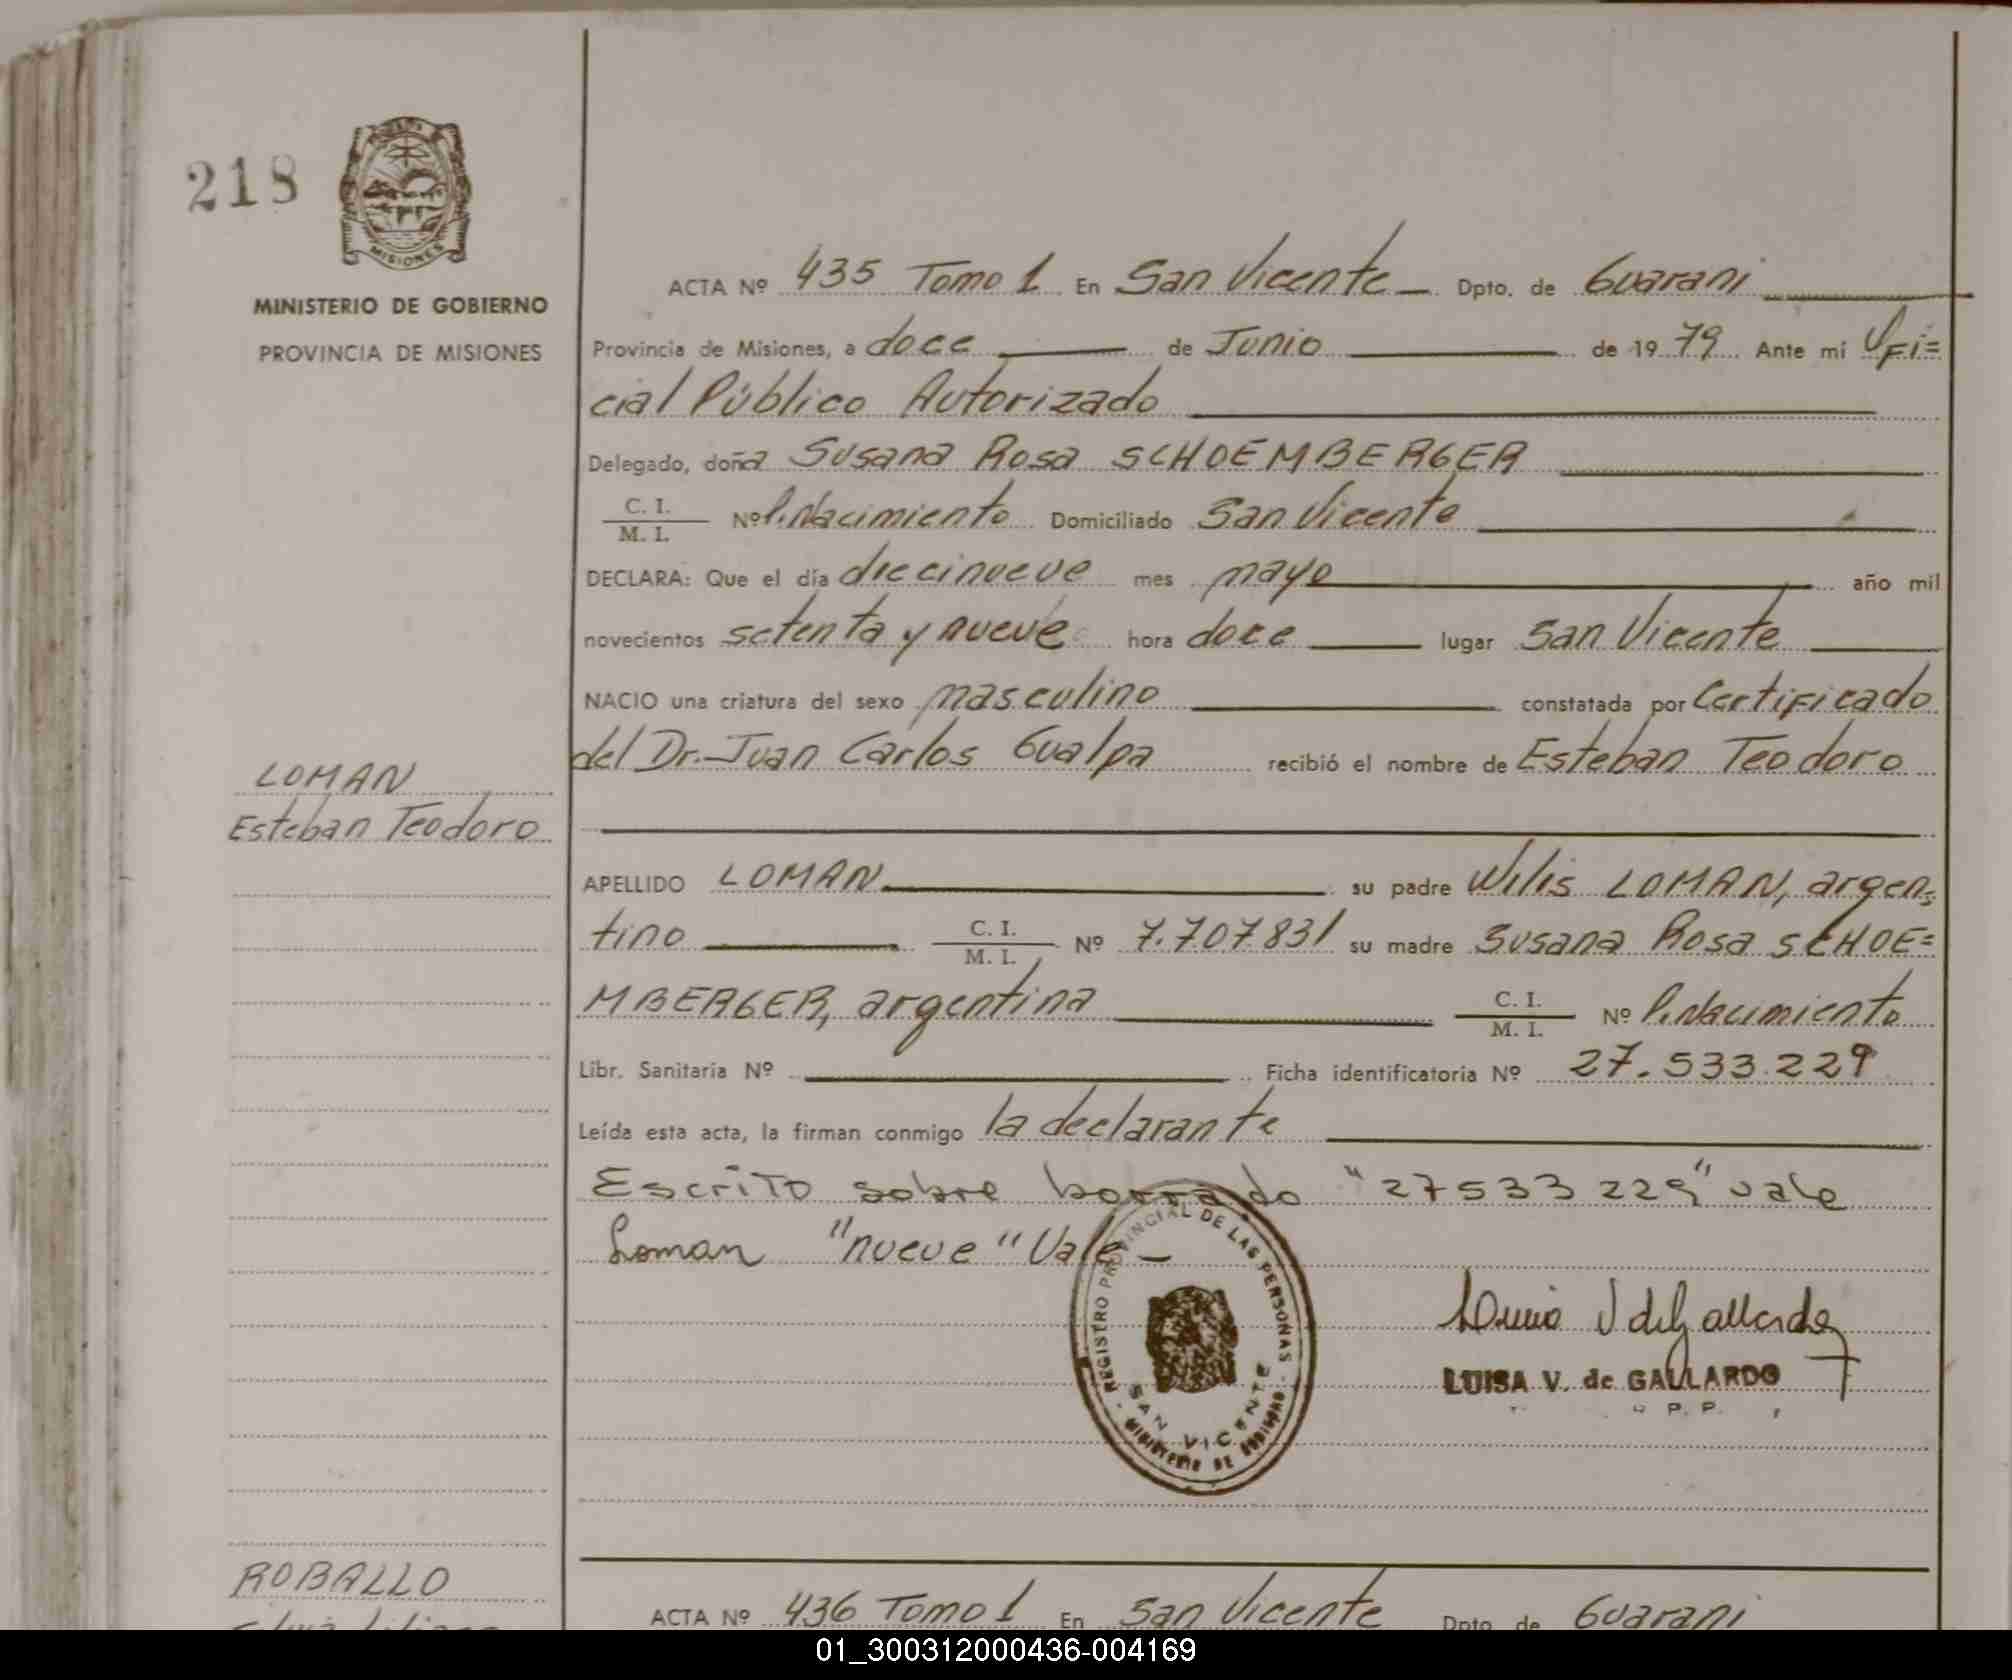 218
MISIONES
MINISTERIO DE GOBIERNO
PROVINCIA DE MISIONES
ACTA Nº 435 Tomo 1 En San Vicente Dpto. de Guarani
Provincia de Misiones, a doce de Junio de 1979 Ante mi Ofi=
cial Público Autorizado
Delegado, doña Susana Rosa SCHOEMBERGER
C. I.
M. I. Nº P.Nacimiento Domiciliado San Vicente
DECLARA: Que el día diecinueve mes mayo año mil
novecientos setenta y nueve hora doce lugar San Vicente
NACIO una criatura del sexo masculino constatada por Certificado
del Dr. Juan Carlos Gualpa recibió el nombre de Esteban Teodoro
LOMAN
Esteban Teodoro
APELLIDO LOMAN su padre Wilis LOMAN, argen=
tino C. I. M. I. Nº 7.707831 su madre Susana Rosa SCHOE=
MBERGER, argentina C. I. M. I. Nº P.Nacimiento
Libr. Sanitaria Nº Ficha identificatoria Nº 27.533.229
Leída esta acta, la firman conmigo la declarante
Escrito sobre borrado "27533229" vale
Loman "nueve" Vale
REGISTRO PROVINCIAL DE LAS PERSONAS
SAN VICENTE
MINISTERIO DE GOBIERNO
LUISA V. de GALLARDO
ROBALLO
ACTA Nº 436 Tomo 1 En San Vicente Dpto de Guarani
01_300312000436-004169